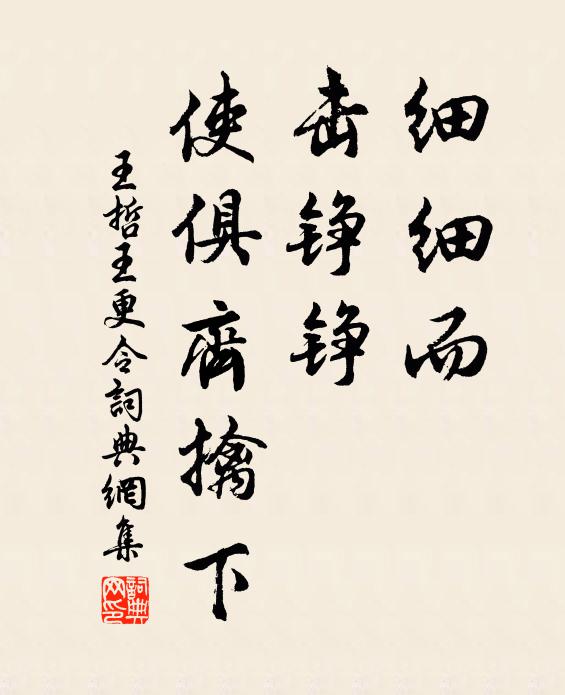 细细而
击铮铮
使俱齊擒下
王哲王更令詞典網集
詞典网印